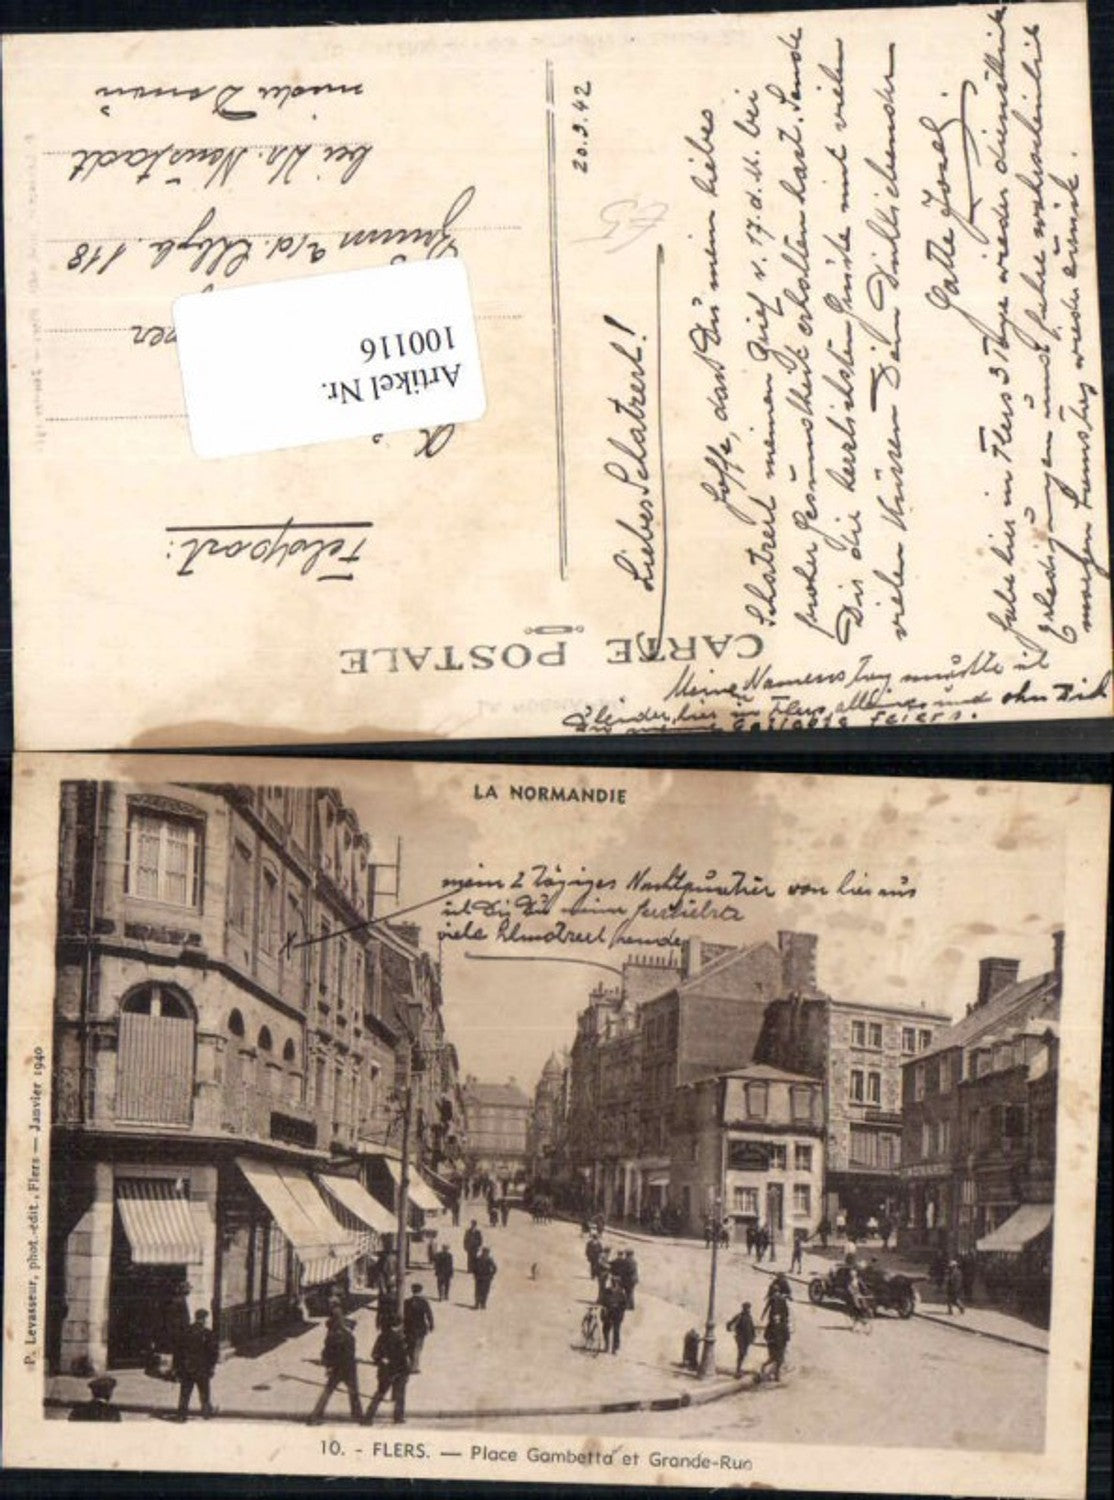 CARTE POSTALE
Feldpost:
Artikel Nr.
100116
a/d. 118
bei Wr. Neustadt
nieder Donau
20.3.42
Liebes Schatzerl!
Hoffe, dass Du mein liebes
Schatzerl meinen Brief v. 17. d. M. bei
froher Gesundheit erhalten hast. Sende
Dir die herzlichsten Grüße mit vielen
vielen Küssen Dein Dich liebender
Gatte Josef
Habe hier in Flers 3 Tage wieder dienstlich
Erledigungen und fahre wahrscheinlich
morgen Samstag wieder zurück.
Meine Namenstag musste ich
leider hier in Flers alleine und ohne Dich
feiern.
LA NORMANDIE
mein 2 tägiges Nachtquartier von hier aus
ich Dir Du meine
viele Schmatzerl sende
P. Levasseur, phot.-édit., Flers — Janvier 1940
10. - FLERS. — Place Gambetta et Grande-Rue